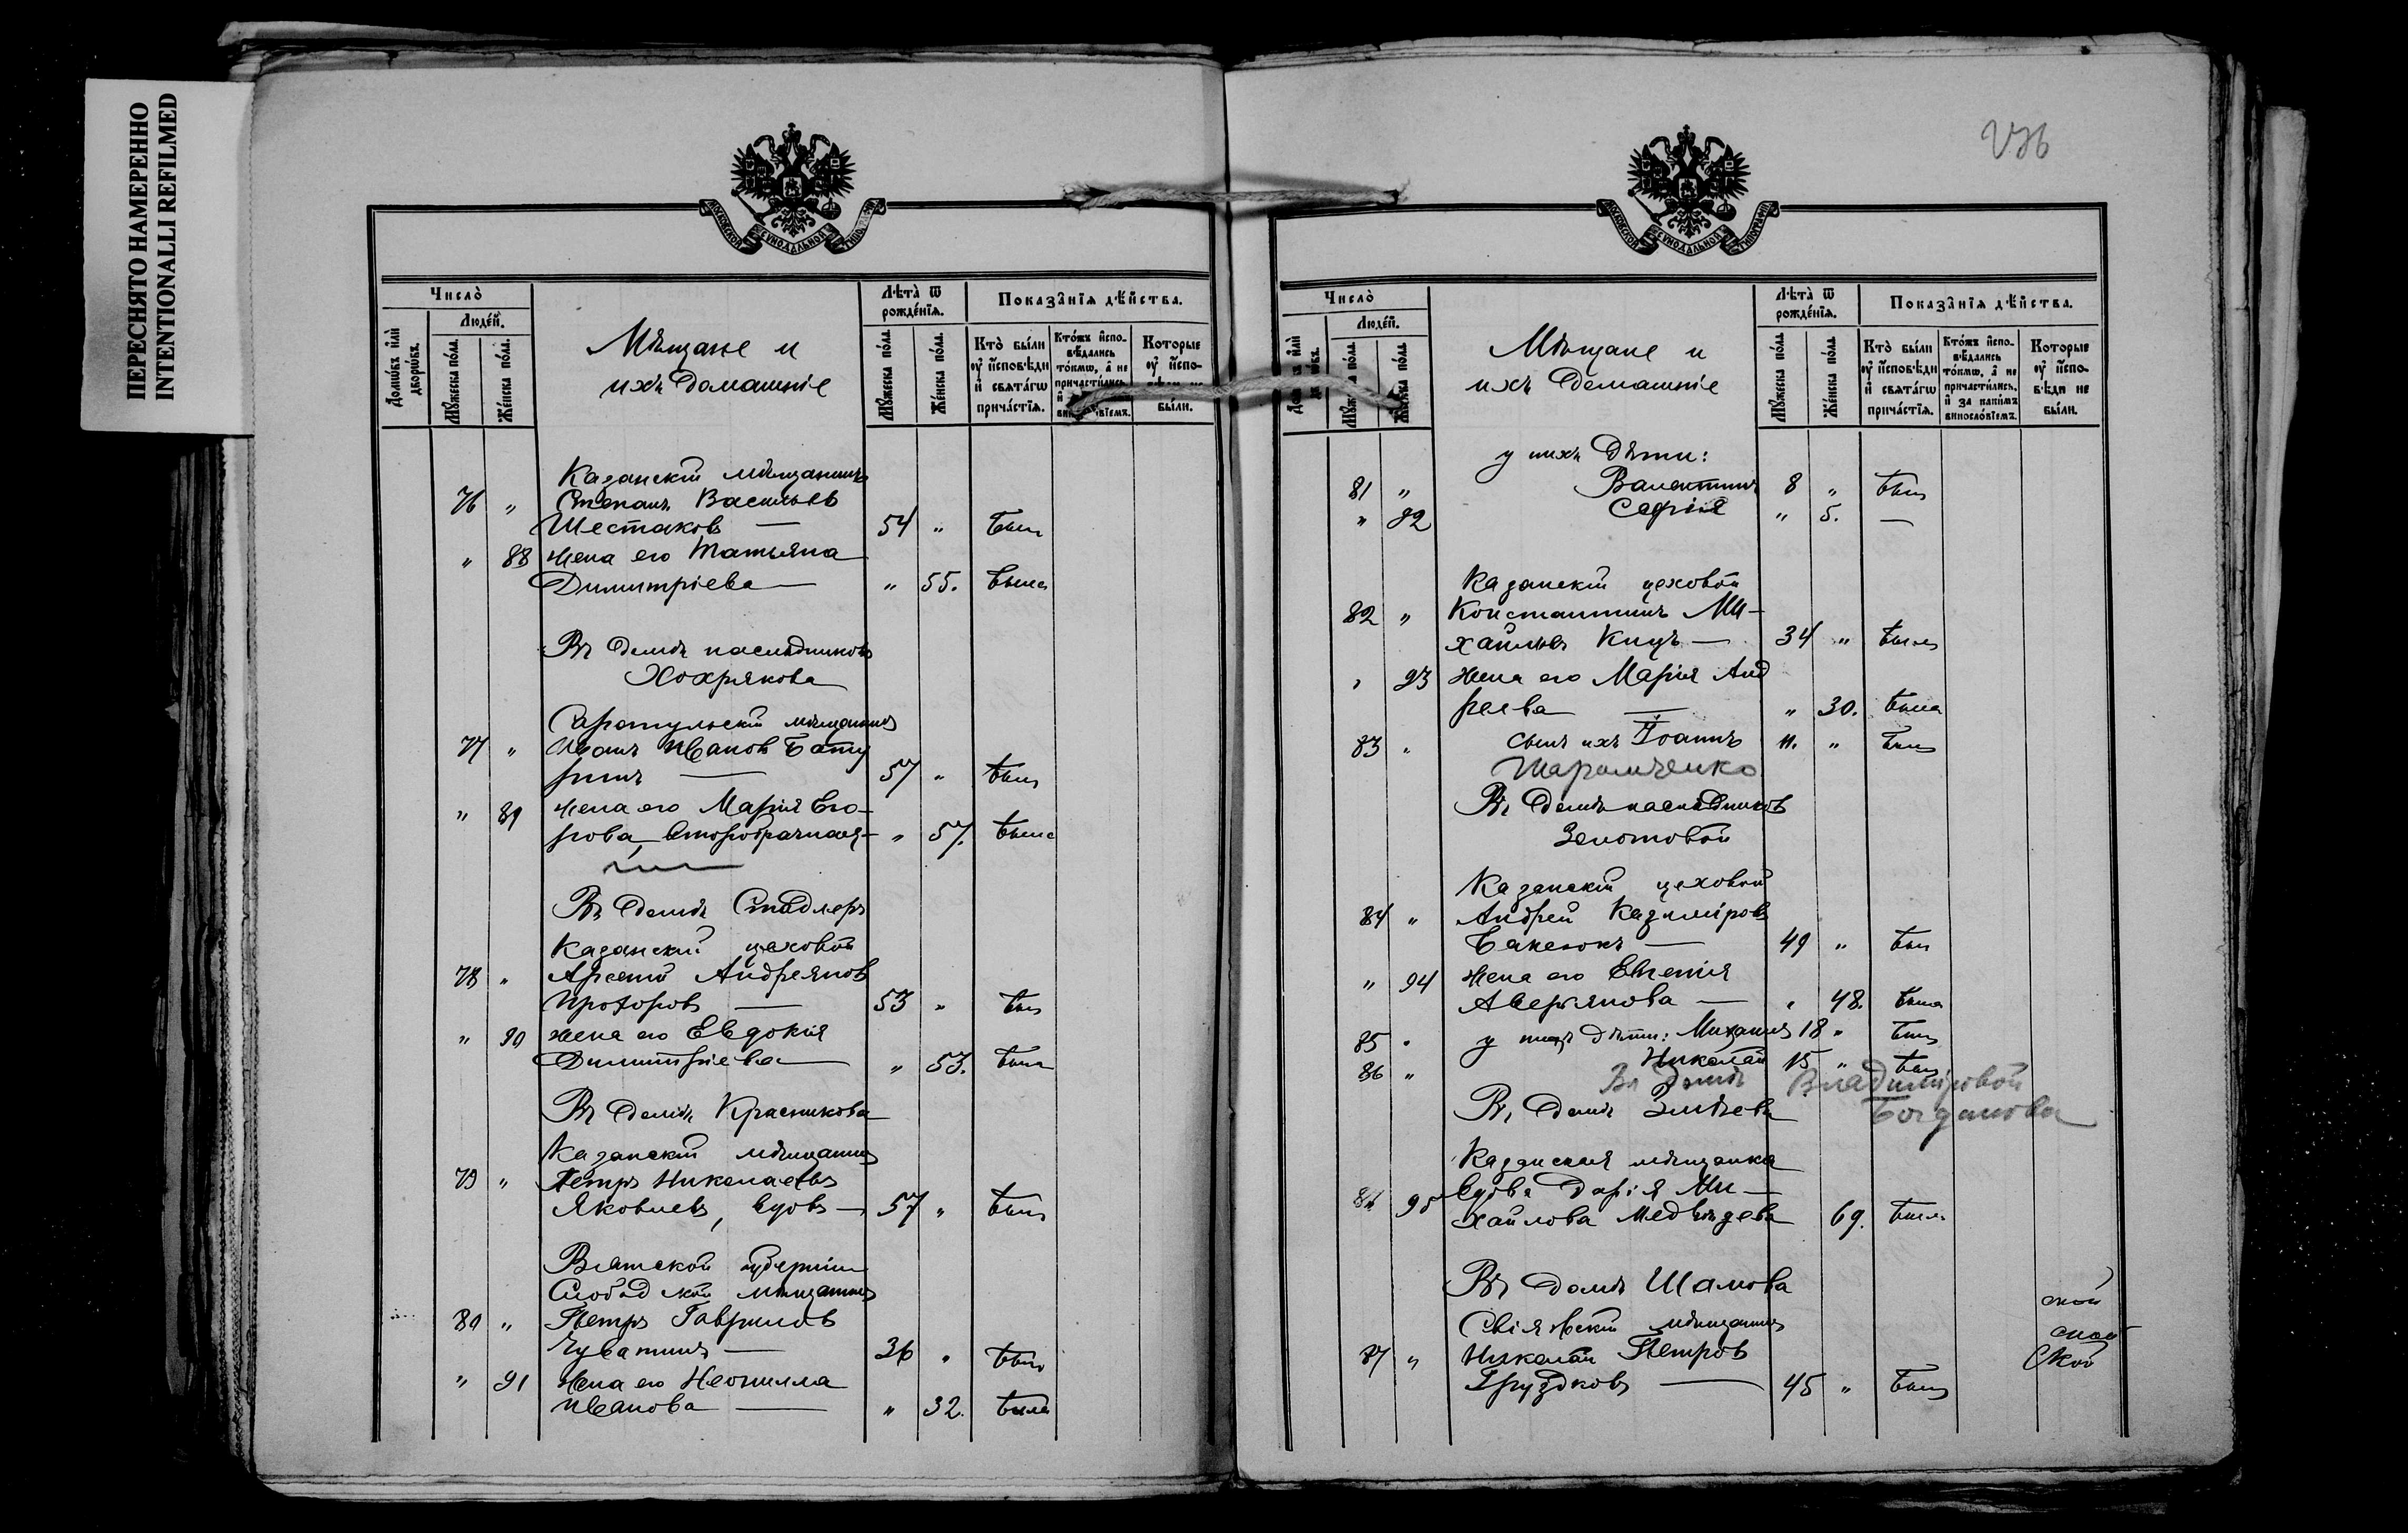 ПЕРЕСНЯТО НАМЕРЕННО
INTENTIONALLI REFILMED
МОСКОВСКОЙ СѴНОДАЛЬНОЙ ТИПОГРАФІИ
Число̀
Людей.
Домѡвъ и҆лѝ дворѡвъ.
Мꙋ́жеска по́ла.
Же́нска по́ла.
Мѣщане и
ихъ домашніе
Лѣта̀ ѿ рожде́нїѧ.
Мꙋ́жеска по́ла.
Же́нска по́ла.
Показа̑нїѧ дѣ́йства.
Кто̀ бы́ли ᲂу҆ и҆́сповѣди и҆ свѧта́гѡ прича́стїѧ.
Кто́жъ и҆сповѣ́дались то́кмѡ, а҆ не причасти́лись,
Которые ᲂу҆ и҆́спо-
бы́ли.
Казанскій мѣщанинъ
76 " Степанъ Васильевъ
Шестаковъ — 54 " былъ
" 88 жена его Татьяна
Димитріева — " 55. была
Въ домѣ наслѣдниковъ
Хохрякова
Сарапульскій мѣщанинъ
77 " Иванъ Ивановъ Бату
ринъ — 57 " былъ
" 89 жена его Марія Его-
рова, второбрачная — " 57. была
Въ домѣ Стадлеръ
Казанскій цеховой
78 " Арсеній Андреяновъ
Прохоровъ — 53 " былъ
" 90 жена его Евдокія
Димитріева — " 53. была
Въ домѣ Красникова
Казанскій мѣщанинъ
79 " Петръ Николаевъ
Яковлевъ, вдовъ — 57 " былъ
Вятской губерніи
Слободской мѣщанинъ
80 " Петръ Гавриловъ
Чуватинъ — 36 " былъ
" 91 жена его Неонилла
Иванова — " 32. была
МОСКОВСКОЙ СѴНОДАЛЬНОЙ ТИПОГРАФІИ
Число̀
Людей.
Мꙋ́жеска по́ла.
Же́нска по́ла.
Мѣщане и
ихъ домашніе
Лѣта̀ ѿ рожде́нїѧ.
Мꙋ́жеска по́ла.
Же́нска по́ла.
Показа̑нїѧ дѣ́йства.
Кто̀ бы́ли ᲂу҆ и҆́сповѣди и҆ свѧта́гѡ прича́стїѧ.
Кто́жъ и҆сповѣ́дались то́кмѡ, а҆ не причасти́лись, и҆ за каки́мъ винословїемъ.
Которые ᲂу҆ и҆́сповѣди не бы́ли.
у нихъ дѣти:
81 " Валентинъ 8 " былъ
" 92 Софія " 5. —
Казанскій цеховой
82 " Константинъ Ми-
хайловъ Кицъ — 34 " былъ
" 93 жена его Марія Анд
реева — " 30. была
83 " сынъ ихъ Іоаннъ 11. " былъ
Въ домѣ наслѣдниковъ
Золотовой
Казанскій цеховой
84 " Андрей Казиміровъ
49 " былъ
" 94 жена его Евгенія
Аверьянова — " 48. была
85 " у нихъ дѣти: Михаилъ 18 " былъ
86 " Николай 15 " былъ
Въ домѣ Владиміровой
Богданова
Въ домѣ Змѣева
Казанская мѣщанка
95 вдова Дарія Ми-
хайлова Медвѣдева 69. была
Въ домѣ Шамова
Свіяжскій мѣщанинъ
87 " Николай Петровъ
Груздковъ — 45 " былъ
ской
ской
ской